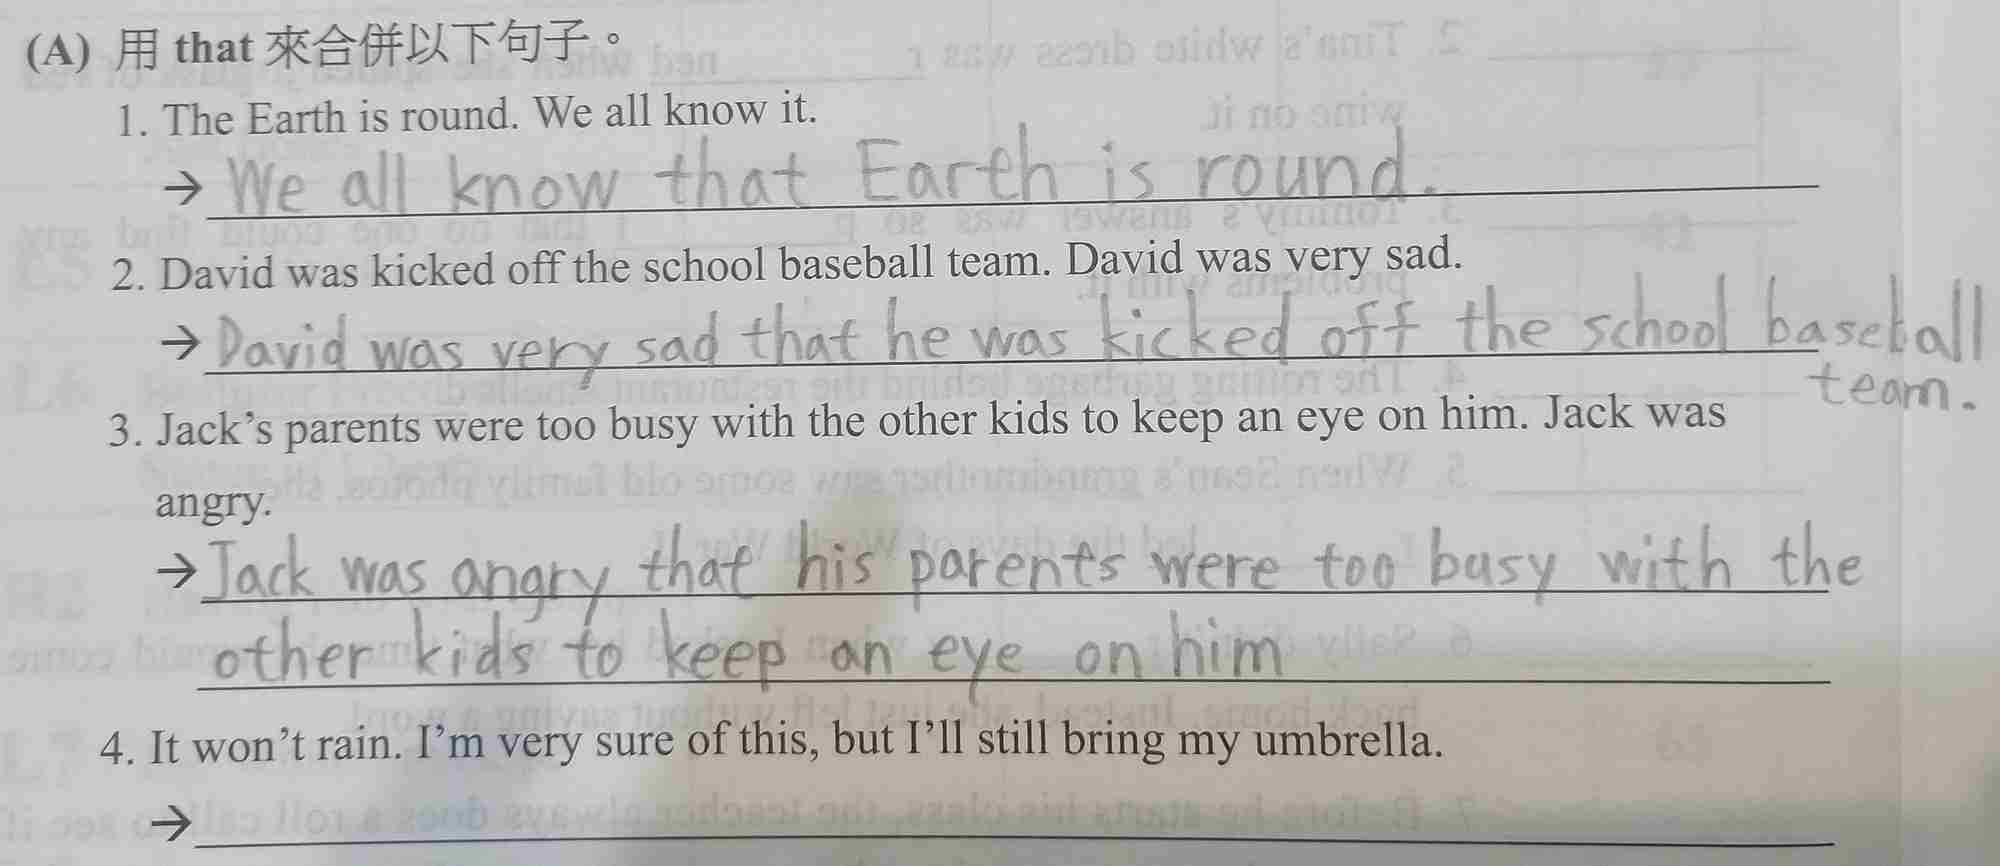 (A) 用 that 來合併以下句子。
1. The Earth is round. We all know it.
→ We all know that Earth is round.
2. David was kicked off the school baseball team. David was very sad.
→ David was very sad that he was kicked off the school baseball
team.
3. Jack's parents were too busy with the other kids to keep an eye on him. Jack was
angry.
→ Jack was angry that his parents were too busy with the
other kids to keep an eye on him
4. It won't rain. I'm very sure of this, but I'll still bring my umbrella.
→